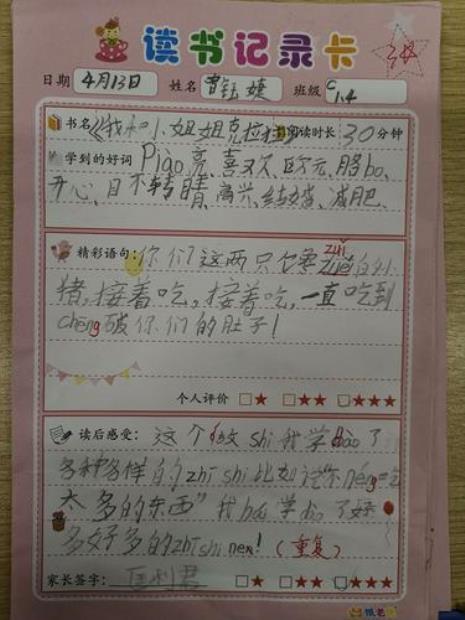 读书记录卡
日期 4月13日 姓名 曾钰婕 班级 1.4
书名《我和小姐姐克拉拉》阅读时长 30分钟
学到的好词 Piao亮、喜欢、欧元、胳bo、
开心、目不转睛、高兴、结婚、减肥、
精彩语句:你们这两只仓零zuǐ的小
猪,接着吃,接着吃,一直吃到
cheng破你们的肚子!
个人评价 □★ □★★ □★★★
读后感受:这个故shi我学dao了
各种各样的zhī shi比如说"不néng吃
太多的东西"我hai学dao了好
多好多的zhīshi nen!(重复)
家长签字: □★ □★★ □★★★